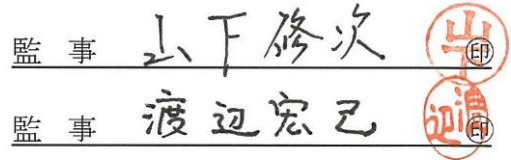 監事 山下修次 ㊞
監事 渡辺宏己 ㊞